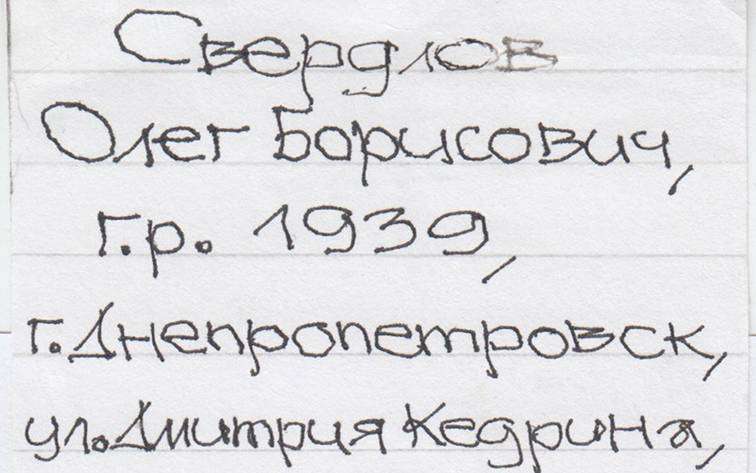 Свердлов
Олег Борисович,
г.р. 1939,
г. Днепропетровск,
ул. Дмитрия Кедрина,